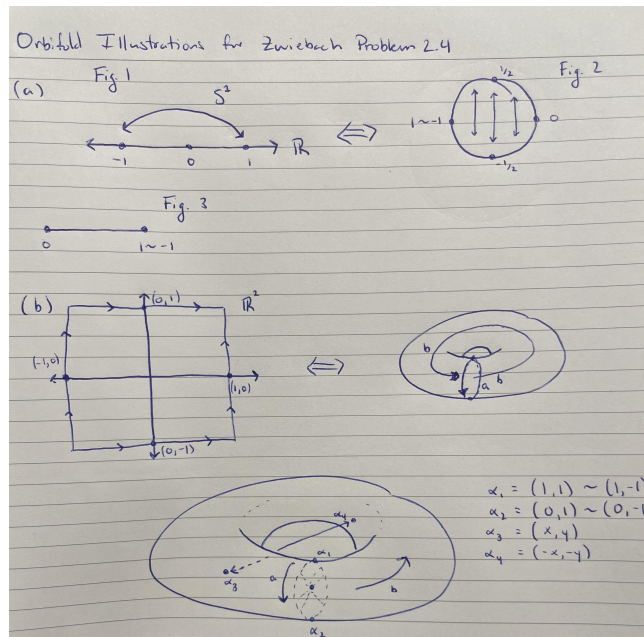 Orbifold Illustrations for Zwiebach Problem 2.4
(a) Fig. 1
S¹
-1 0 1 ℝ
⇔
Fig. 2
1/2
1~-1 0
-1/2
Fig. 3
0 1~-1
(b) (0,1) ℝ²
(-1,0) (1,0)
(0,-1)
⇔
b a b
α₁ = (1,1) ~ (1,-1
α₂ = (0,1) ~ (0,-1
α₃ = (x,y)
α₄ = (-x,-y)
α₄
α₁
α₃ a b
α₂